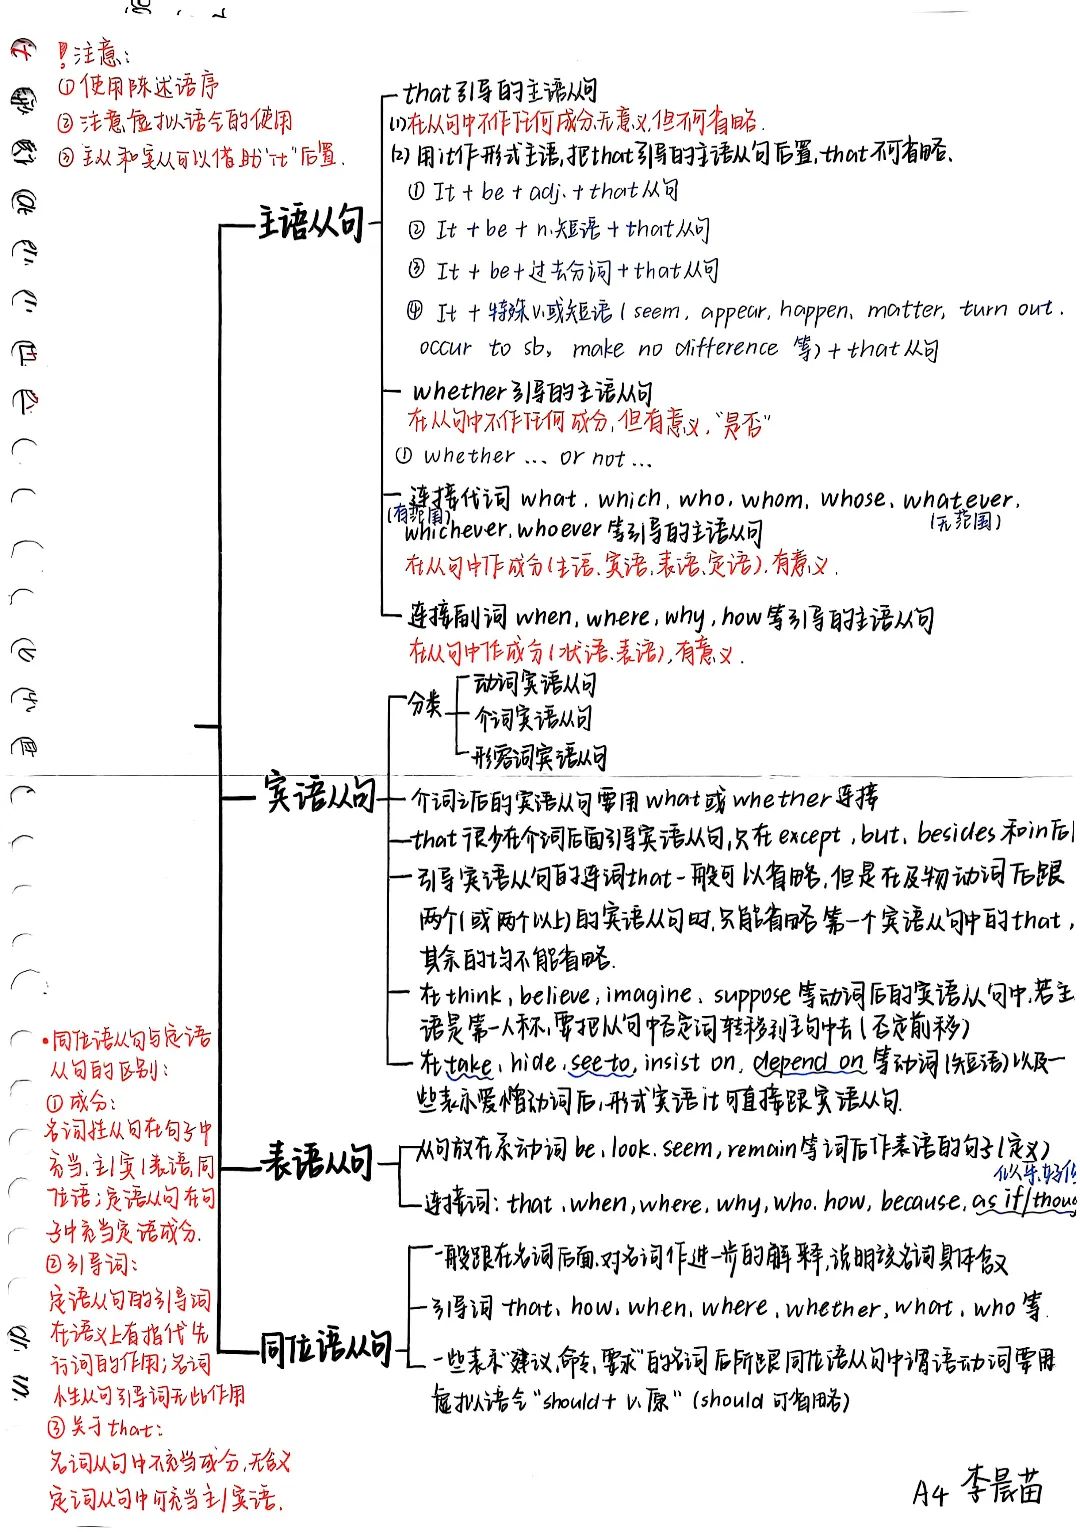 ！注意：
①使用陈述语序
②注意虚拟语气的使用
③主从和宾从可以借助"it"后置.
主语从句
that引导的主语从句
(1)在从句中不作任何成分,无意义,但不可省略.
(2)用it作形式主语,把that引导的主语从句后置,that不可省略.
① It + be + adj. + that从句
② It + be + n.短语 + that从句
③ It + be + 过去分词 + that从句
④ It + 特殊v.或短语 ( seem, appear, happen, matter, turn out.
occur to sb, make no difference 等) + that从句
whether引导的主语从句
在从句中不作任何成分,但有意义,"是否"
① whether ... or not ...
连接代词 what, which, who, whom, whose, whatever,
(有范围)
(无范围)
whichever, whoever 等引导的主语从句
在从句中作成分(主语、宾语、表语、定语),有意义.
连接副词 when, where, why, how等引导的主语从句
在从句中作成分(状语、表语),有意义.
宾语从句
分类
动词宾语从句
介词宾语从句
形容词宾语从句
介词之后的宾语从句要用what或whether连接
that很少在介词后面引导宾语从句,只在except, but, besides和in后
引导宾语从句的连词that一般可以省略,但是在及物动词后跟
两个(或两个以上)的宾语从句时,只能省略第一个宾语从句中的that,
其余的均不能省略.
在think, believe, imagine, suppose等动词后的宾语从句中,若主
语是第一人称,要把从句中否定词转移到主句中去(否定前移)
在take, hide, see to, insist on, depend on 等动词(短语)以及一
些表示爱憎动词后,形式宾语it可直接跟宾语从句.
表语从句
从句放在系动词be, look, seem, remain等词后作表语的句子(定义)
连接词: that, when, where, why, who, how, because, as if/thou
似乎,好像
同位语从句
一般跟在名词后面,对名词作进一步的解释,说明该名词具体含义
引导词 that, how, when, where, whether, what, who等.
一些表示"建议,命令,要求"的名词后所跟同位语从句中谓语动词要用
虚拟语气"should + v.原" (should可省略)
•同位语从句与定语
从句的区别:
①成分:
名词性从句在句子中
充当主/宾/表语,同
位语;定语从句在句
子中充当定语成分.
②引导词:
定语从句的引导词
在语义上有指代先
行词的作用;名词
性从句引导词无此作用
③关于that:
名词从句中不充当成分,无含义
定词从句中可充当主/宾语.
A4 李晨苗